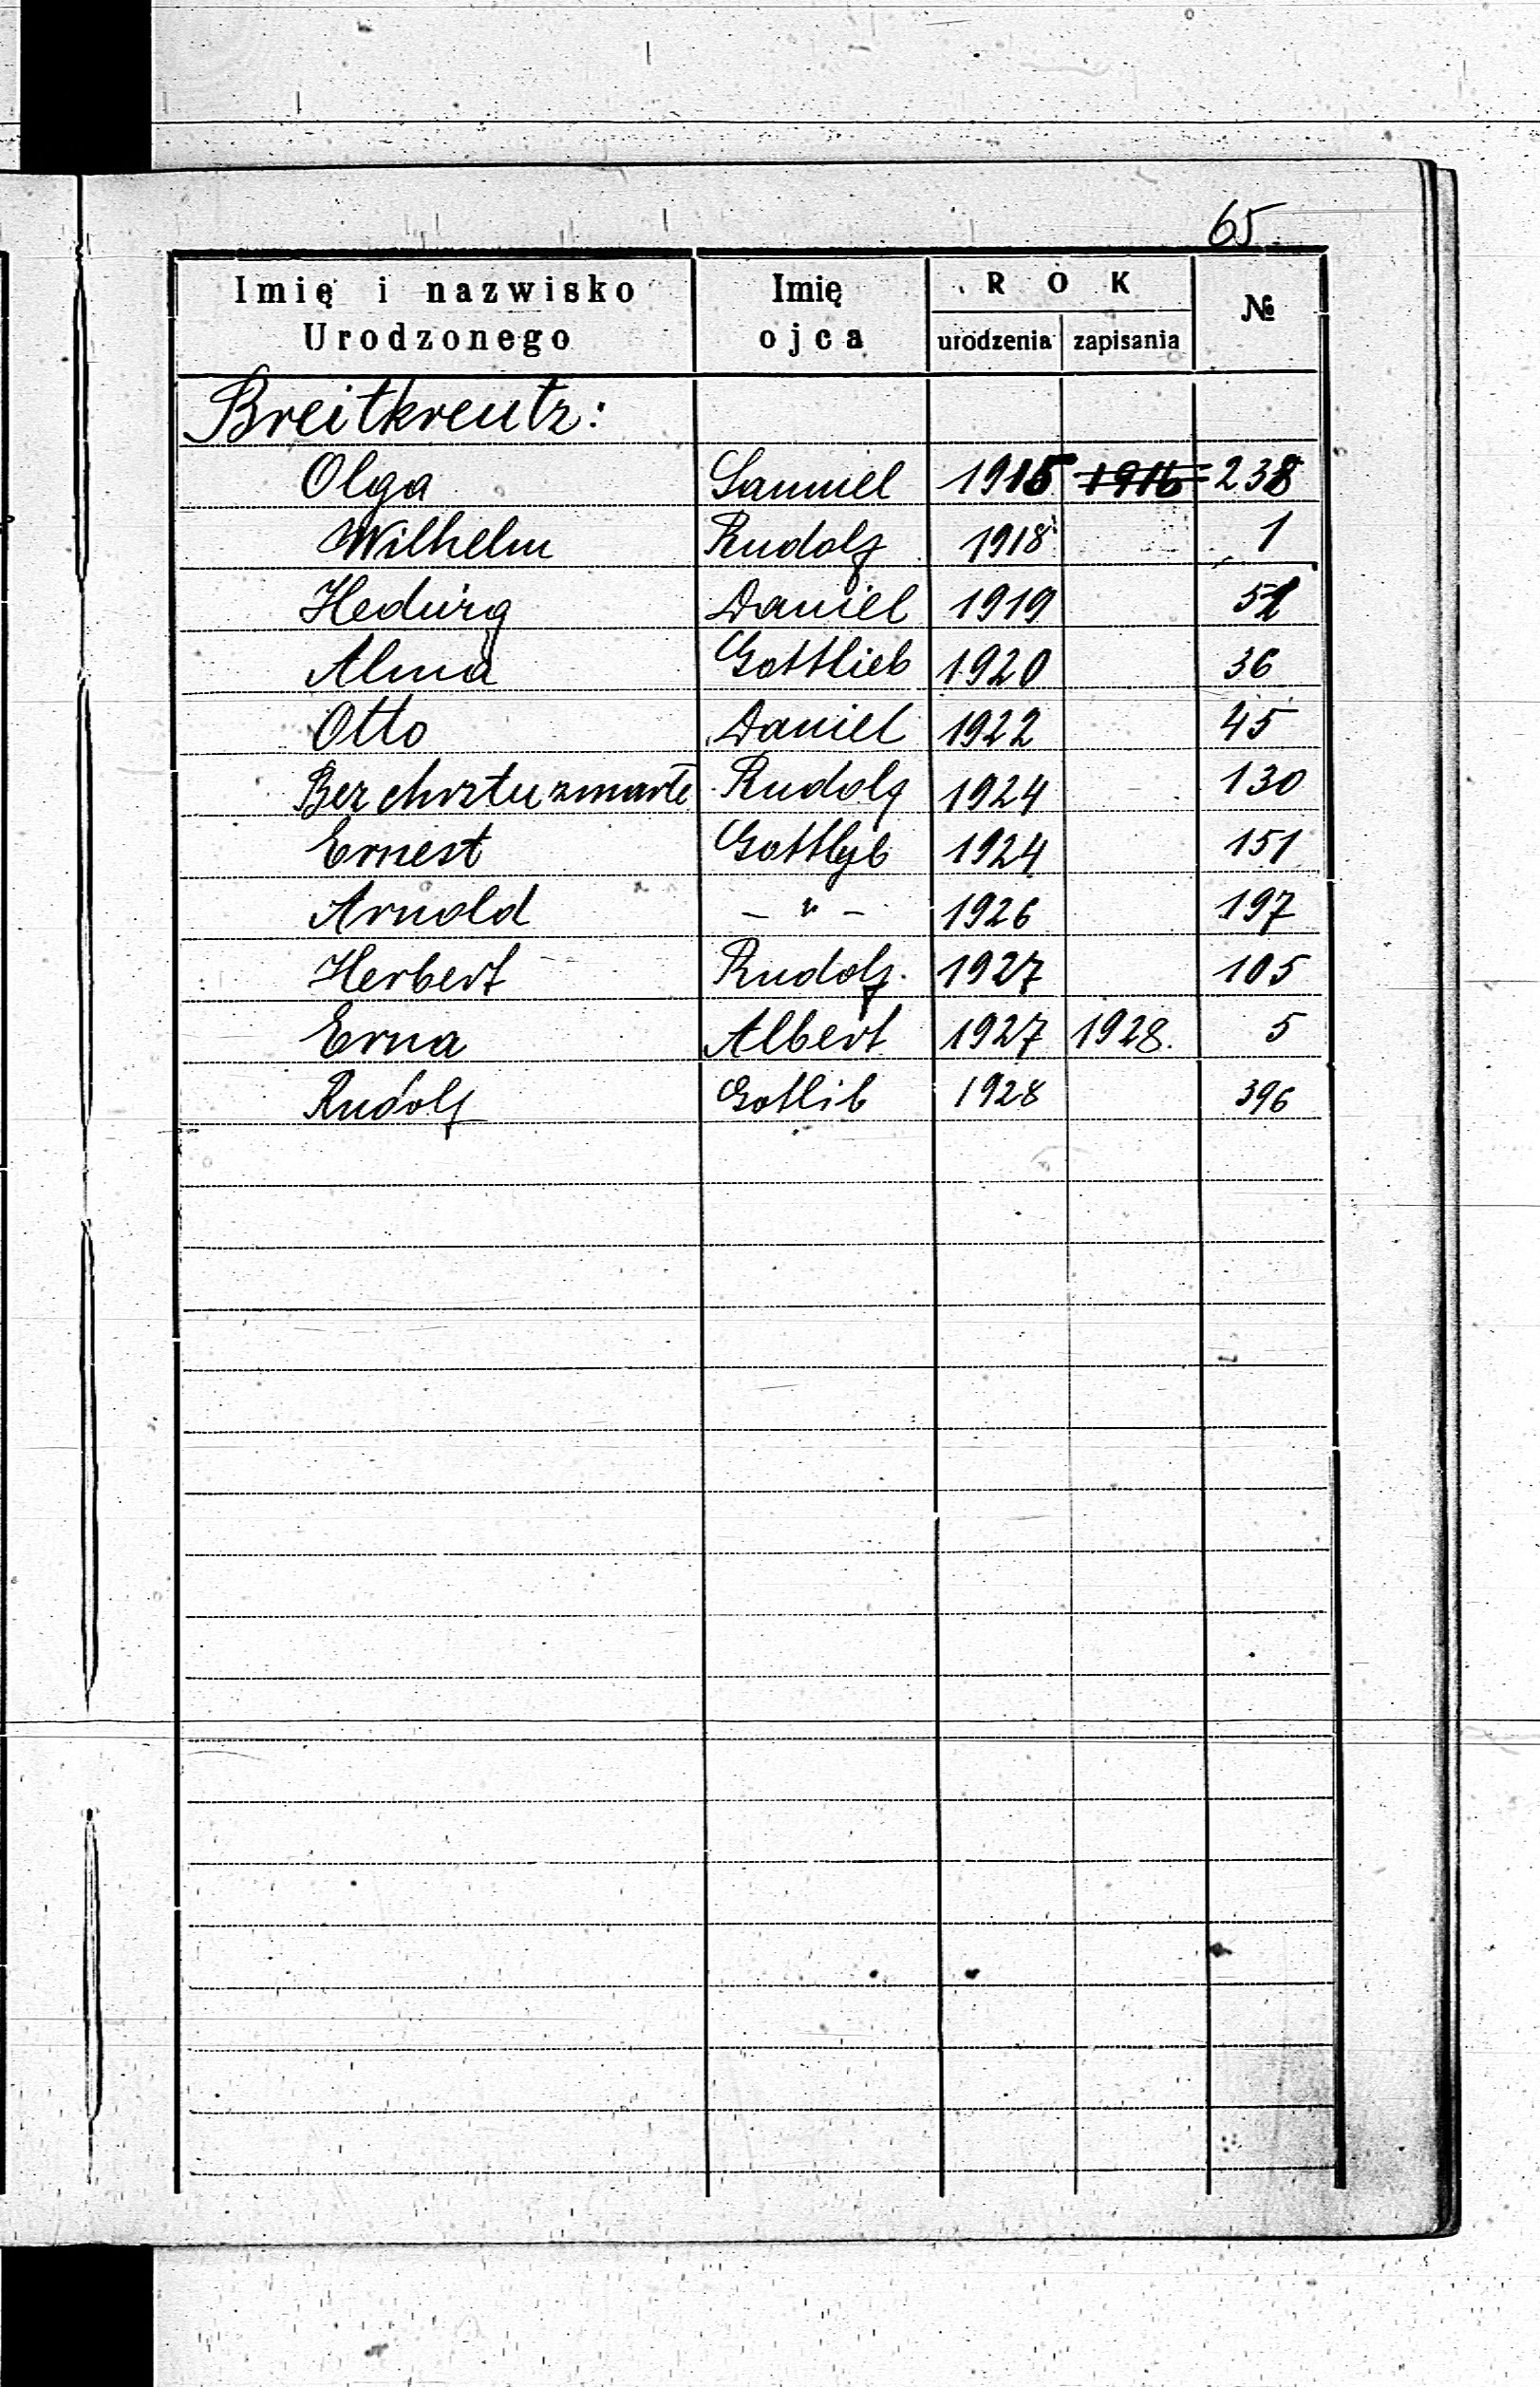 65
Imię i nazwisko Urodzonego Imię ojca ROK urodzenia zapisania №
Breitkreutz:
Olga Samuel 1915 1916 238
Wilhelm Rudolf 1918 1
Hedwig Daniel 1919
Alma Gottlieb 1920 36
Otto Daniel 1922 45
Bez chrztu zmarłe Rudolf 1924 130
Ernest Gottlyb 1924 151
Arnold – " – 1926 197
Herbert Rudolf. 1927 105
Erna Albert 1927 1928. 5
Rudolf Gotlib 1928 396